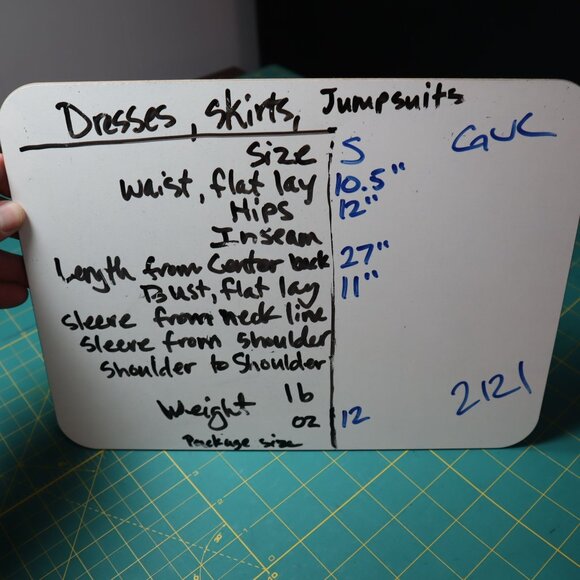 Dresses, skirts, Jumpsuits
size S GUC
waist, flat lay 10.5"
Hips 12"
Inseam
Length from Center back 27"
Bust, flat lay 11"
sleeve from neck line
sleeve from shoulder
shoulder to Shoulder
lb
Weight oz 12 2121
Package size